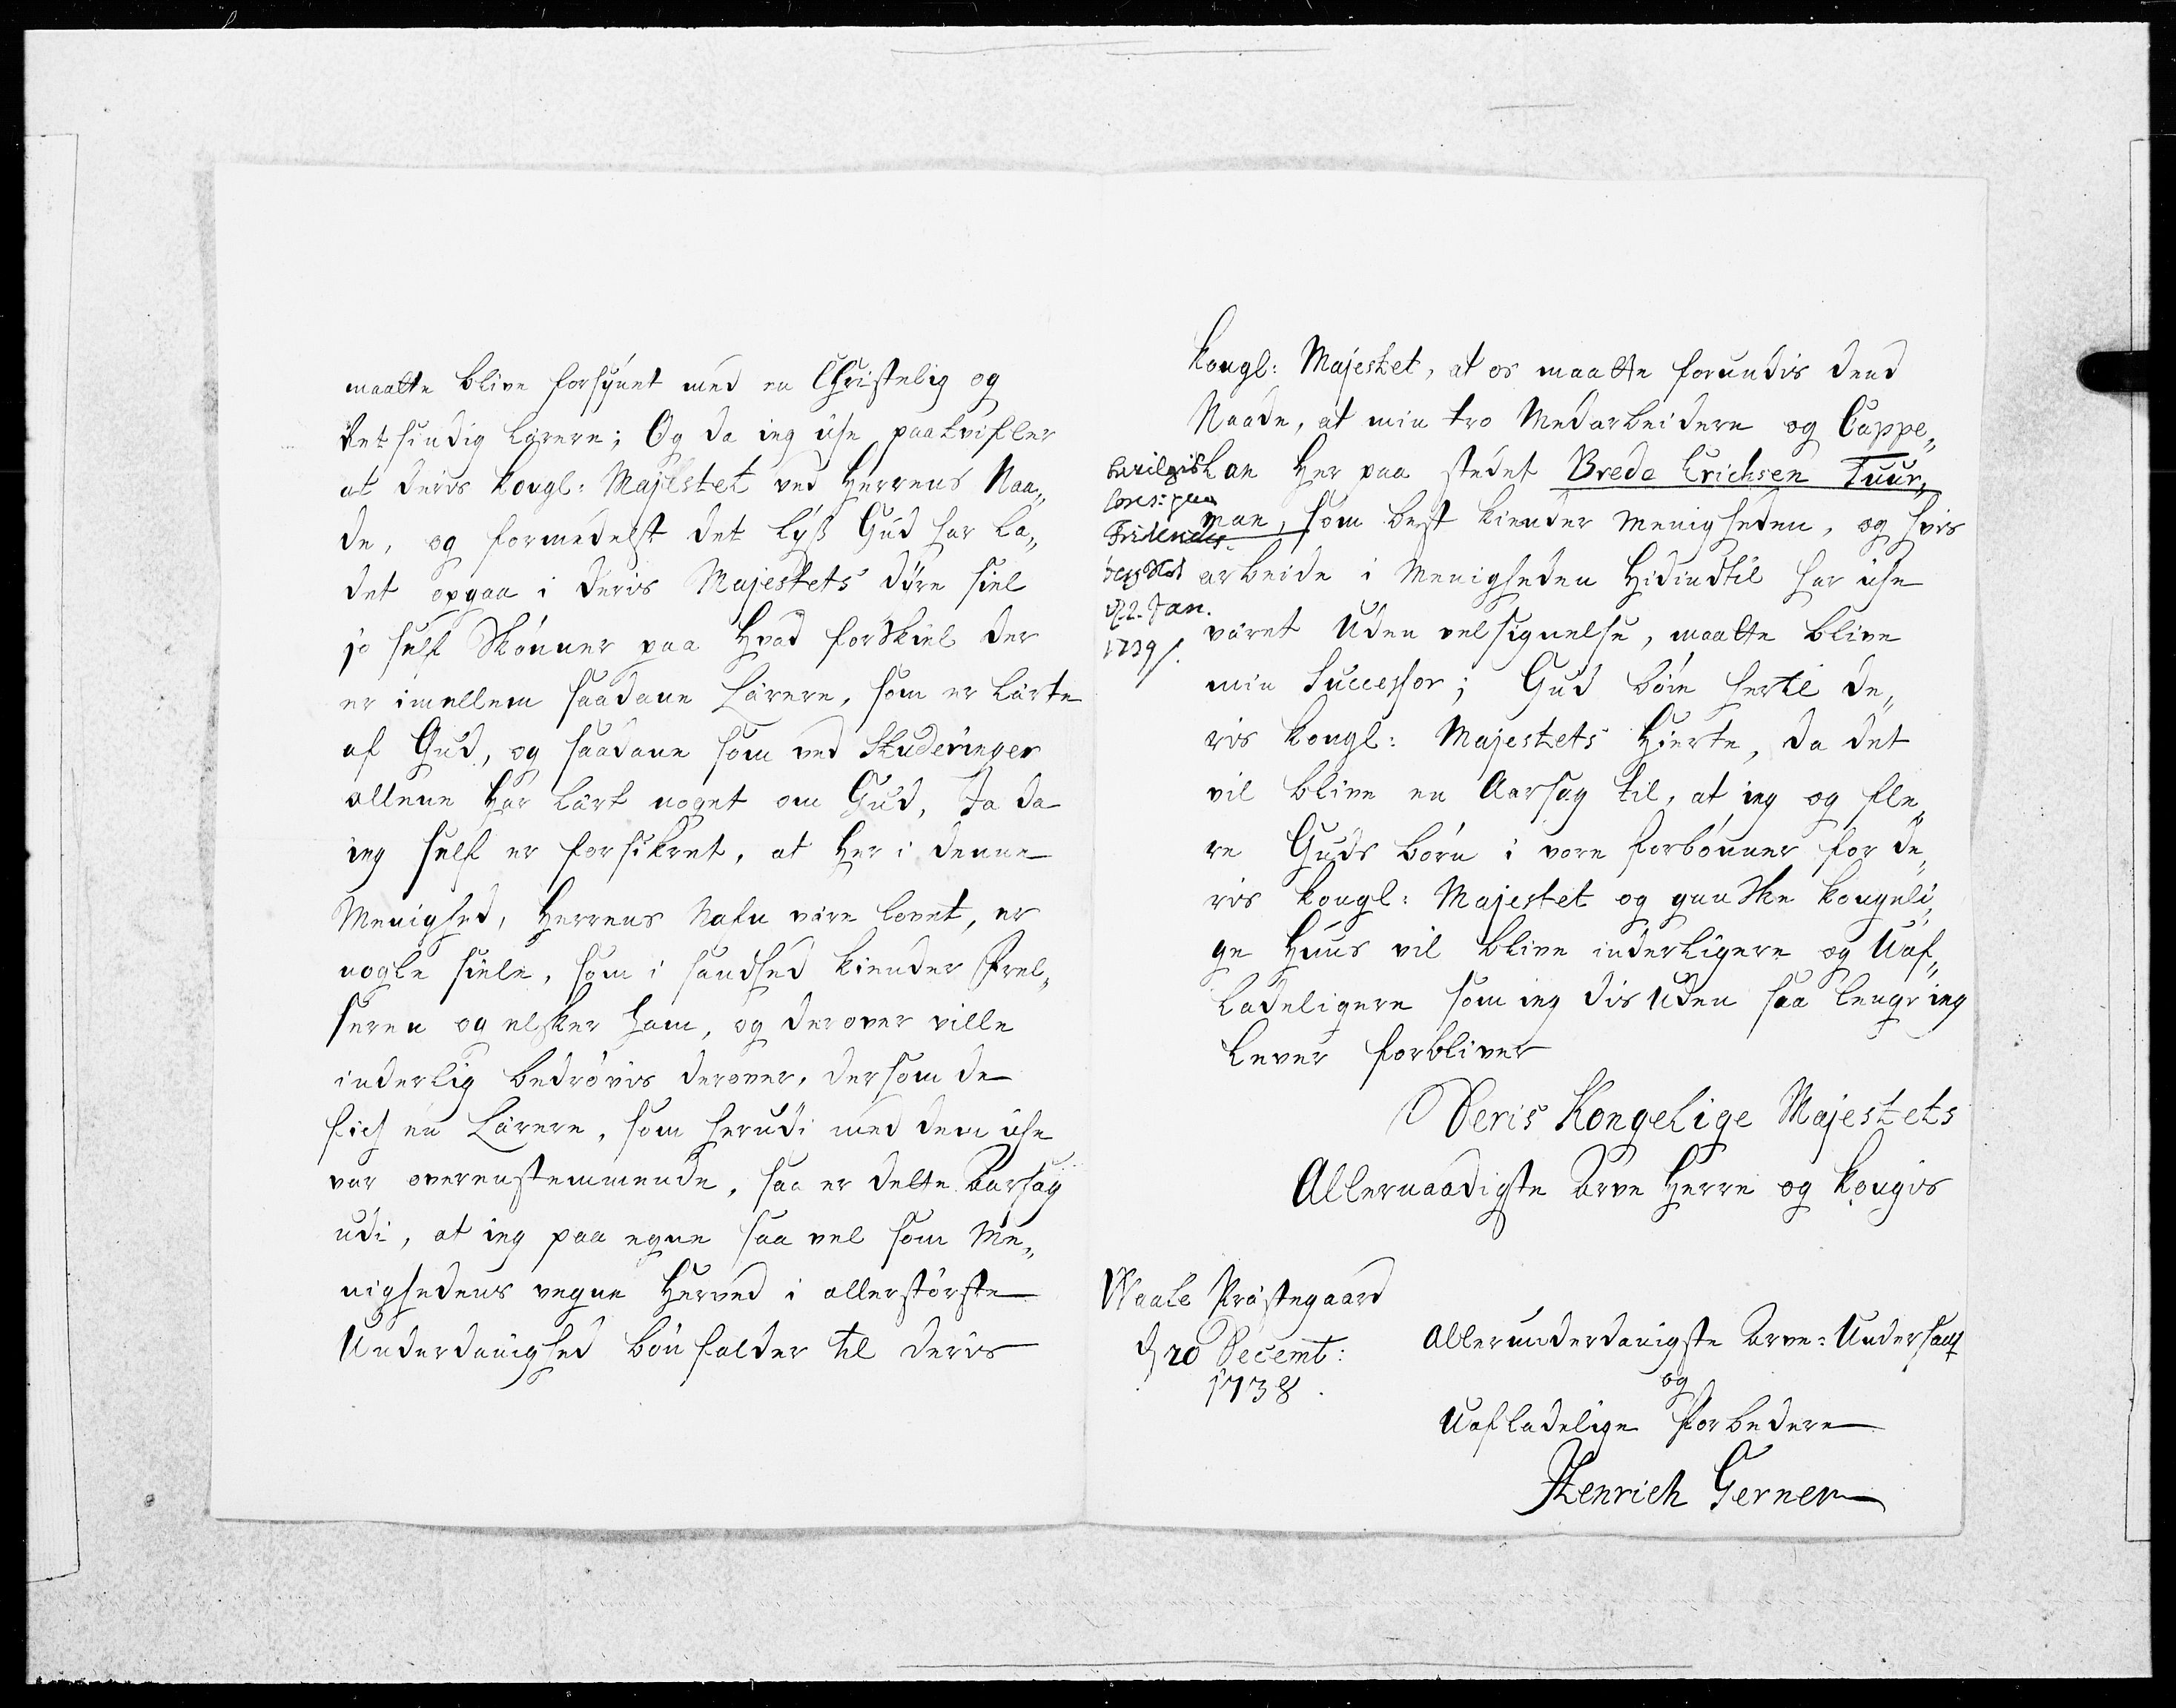 maatte blive forsÿnet med en Christelig og
Retsindig Lærere; Og da ieg icke paatvifler
at deris Kongl: Majestet ved Herrens Naa„
de, og formedelst det Lÿs Gud har la„
det opgaa i deris Majestets dÿre siel
jo self Skönner paa Hvad forskiel der
er imellem saadane Lærere, som er lærte
af Gud, og saadane som ved Studeringer
allene har lært noget om Gud, Ja da
ieg self er forsikret, at her i denne
Menighed, Herrens Nafn være lovet, er
nogle siele, som i sandhed kiender Frel„
seren og elsker ham, og derover ville
inderlig bedrövis derover, dersom de
fich en Lærere, som herudi med dem icke
var overenstemmende, saa er dette Aarsag
udi, at ieg paa egne saa vel som Me„
nighedens vegne Herved i allerstörste
Underdanighed bönfalder til deris
Kongl: Majestet, at os maatte forundis dend
Naade, at min tro Medarbeidere og Cappe„
lan Her paa stedet Brede Erichsen Tuur„
man, som best kiender Menigheden, og hvis
arbeide i Menigheden Hidindtil har icke
været Uden velsignelse, maatte blive
min Successor; Gud böie hertil de„
ris Kongl: Majestets Hierte, da det
vil blive en Aarsag til, at ieg og fle„
re Guds börn i vore forbönner for de„
ris Kongl: Majestet og gandske Kongeli„
ge Huus vil blive inderligere og Uaf„
ladeligere som ieg dis uden saa lenge ieg
lever forbliver
Deris Kongelige Majestets
Allernaadigste Arve Herre og Kongis
bevilgis
Fridericks-
berg Slot
d. 2. Jan.
1739.
Waale Præstegaard
d 20 Decemb:
1738.
allerunderdanigste Arve-Undersaat
og
Uafladelige Forbedere
Henrich Gerner